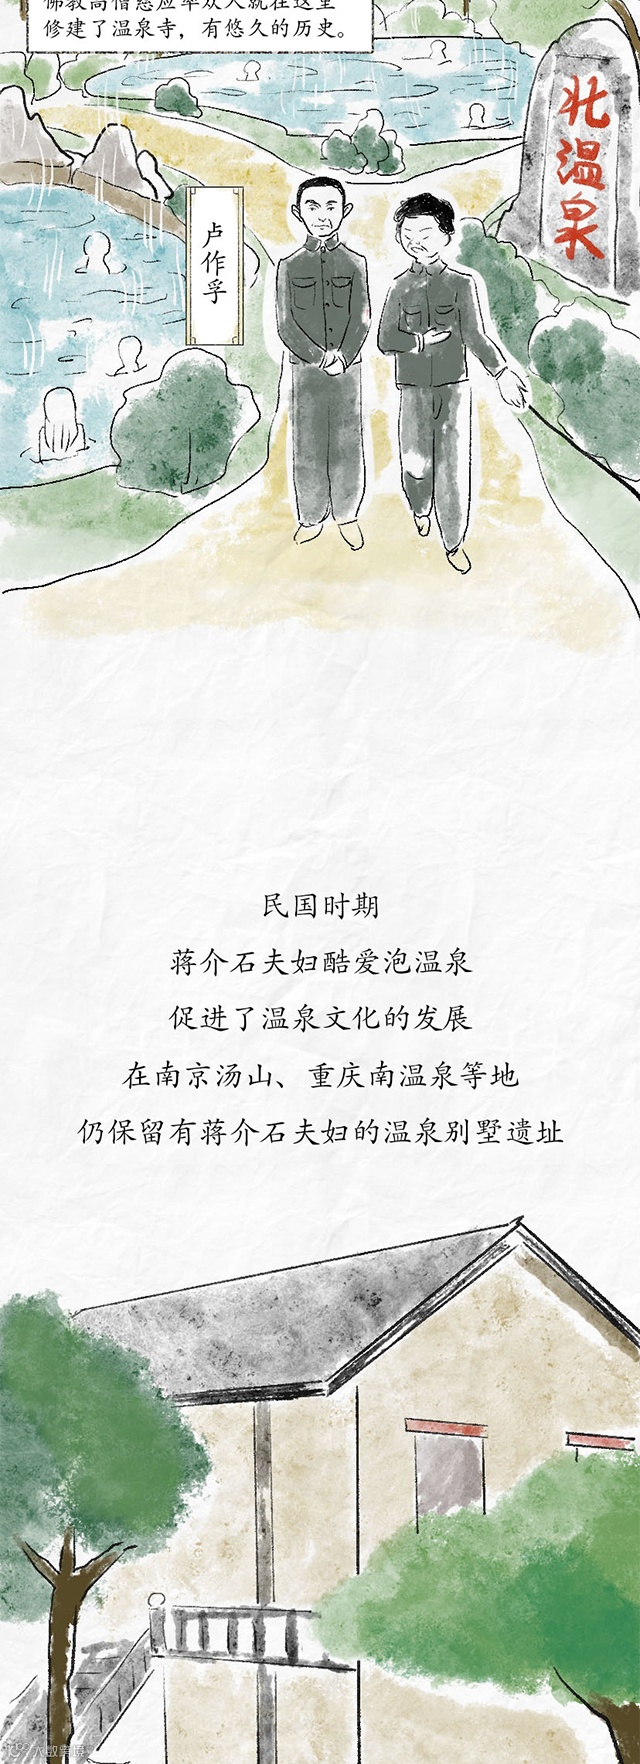 佛教高僧慈应率众人就在这里
修建了温泉寺，有悠久的历史。
北温泉
卢作孚
民国时期
蒋介石夫妇酷爱泡温泉
促进了温泉文化的发展
在南京汤山、重庆南温泉等地
仍保留有蒋介石夫妇的温泉别墅遗址